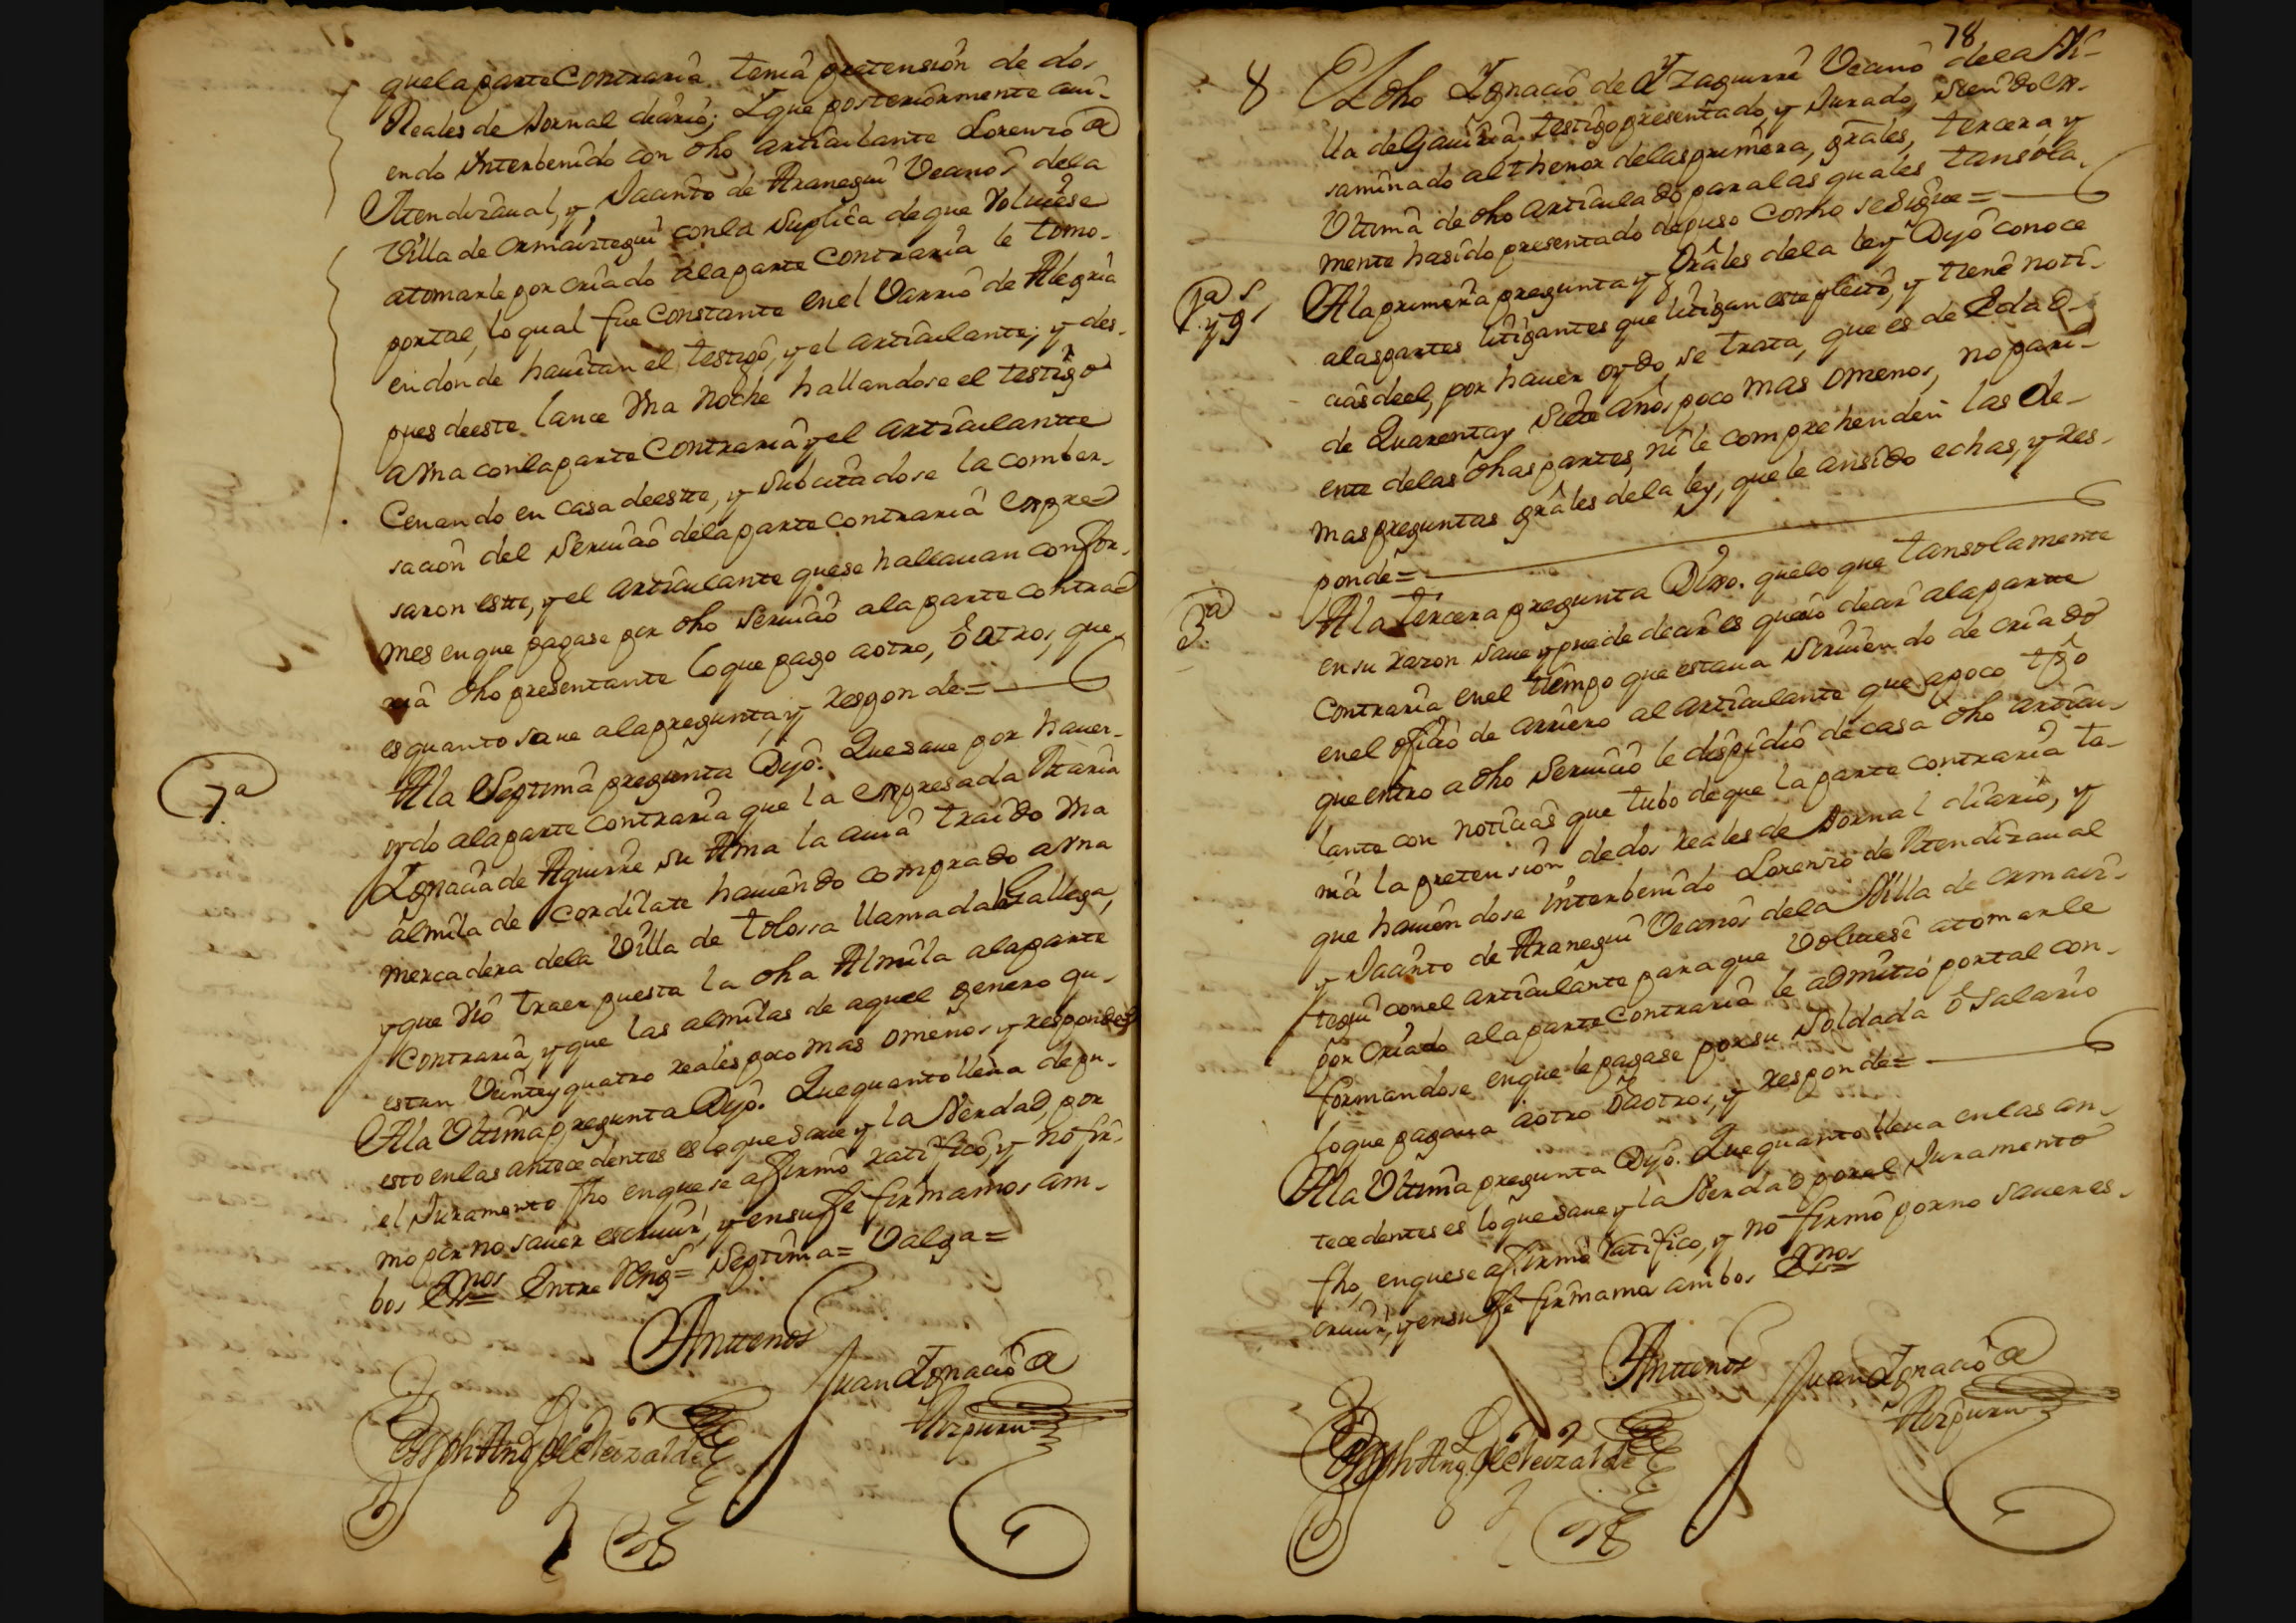 que la parte Contraria tenia pretension de dos
Reales de Jornal diario; Y que posteriormente avi-
endo Interbenido con dho articulante Lorenzo de
Mendizaval, y Jacinto de Aranegui Vecinos de la
Villa de Ormaiztegui con la Suplica de que Volviese
a tomarle por criado a la parte Contraria le tomo
por tal, lo qual fue Constante en el Varrio de Alegria
en donde havitan el testigo, y el articulante; y des-
pues de este lance Una Noche hallandose el testigo
a Una con la parte Contraria y el articulantte
Cenando en casa de estte, y Subcitadose la comber-
sacion del Servicio de la parte contraria expre
saron estte, y el articulante que se hallavan confor-
mes en que pagase por dho Servicio a la parte contra
ria dho presentante lo que pago a otro, ô otros, que
es quanto save a la pregunta, y responde=
7a
A la Septima pregunta Dijo. Que save por haver
oydo a la parte Contraria que la expresada Maria
Ygnacia de Aguirre su Ama la avia traido Una
almila de Cordilate haviendo comprado a Una
mercadera de la Villa de Tolossa llamada la Gallega,
y que vio traer puesta la dha Almila a la parte
Contraria, y que las almilas de aquel genero qu-
estan Veinte y quatro reales poco mas o menos y responde
A la Ultima pregunta Dijo. Que quanto lleva depu-
esto en las antecedentes es lo que save y la Verdad, por
el Juramento fho en que se affirmo ratifico, y no fir-
mo por no saver escrivir, y en su ffe firmamos am-
bos Essnos Entre Reng.s= Septima= Valga=
Anttenos
Juan Ygnacio de
Aizpuru
78
8 El dho Ygnacio de Yzaguirre Vecino de la Vi-
lla de Gaviria, testigo presentado, y Jurado, Siendo ex-
saminado al thenor de las primera, grales, tercera, y
Ultima de dho articulado para las quales tan sola-
mente ha sido presentado depuso como se sigue=
1a y gs
A la primera pregunta y Grales de la ley Dijo conoce
a las partes litigantes que litigan este pleito, y tiene noti-
cias de el, por haver oydo, se trata, que es de Edad
de Quarenta y Siete años poco mas o menos, no pari-
ente de las dhas partes, ni le comprehenden las de-
mas preguntas grales de la ley, que le an sido echas, y res-
ponde=
3a
A la Tercera pregunta Dixo. que lo que tan solamente
en su razon save y puede decir es que oio decir a la partte
Contraria en el tiempo que estava Sirviendo de criado
en el oficio de arriero al articulante que a poco tpo
que entro a dho Servicio le dispidio de casa dho articu-
lante con noticias que tubo de que la parte contraria te-
nia la pretension de dos reales de Jornal diario, y
que haviendose interbenido Lorenzo de Mendizaval
y Jacinto de Aranegui Vecinos de la Villa de Ormaiz-
tegui con el articulante para que Volviese a tomarle
por Criado a la parte Contraria le admitio por tal con-
formandose en que le pagase por su Soldada ô Salario
lo que pagava a otro ô a otros, y responde=
A la Ultima pregunta Dijo. Que quanto lleva en las an-
tecedentes es lo que save y la Verdad por el Juramento
fho, en que se affirmo Ratifico, y no firmo por no saver es-
crivir, y en su ffe firmamos ambos Essnos
Anttenos
Juan Ygnacio de
Aizpuru